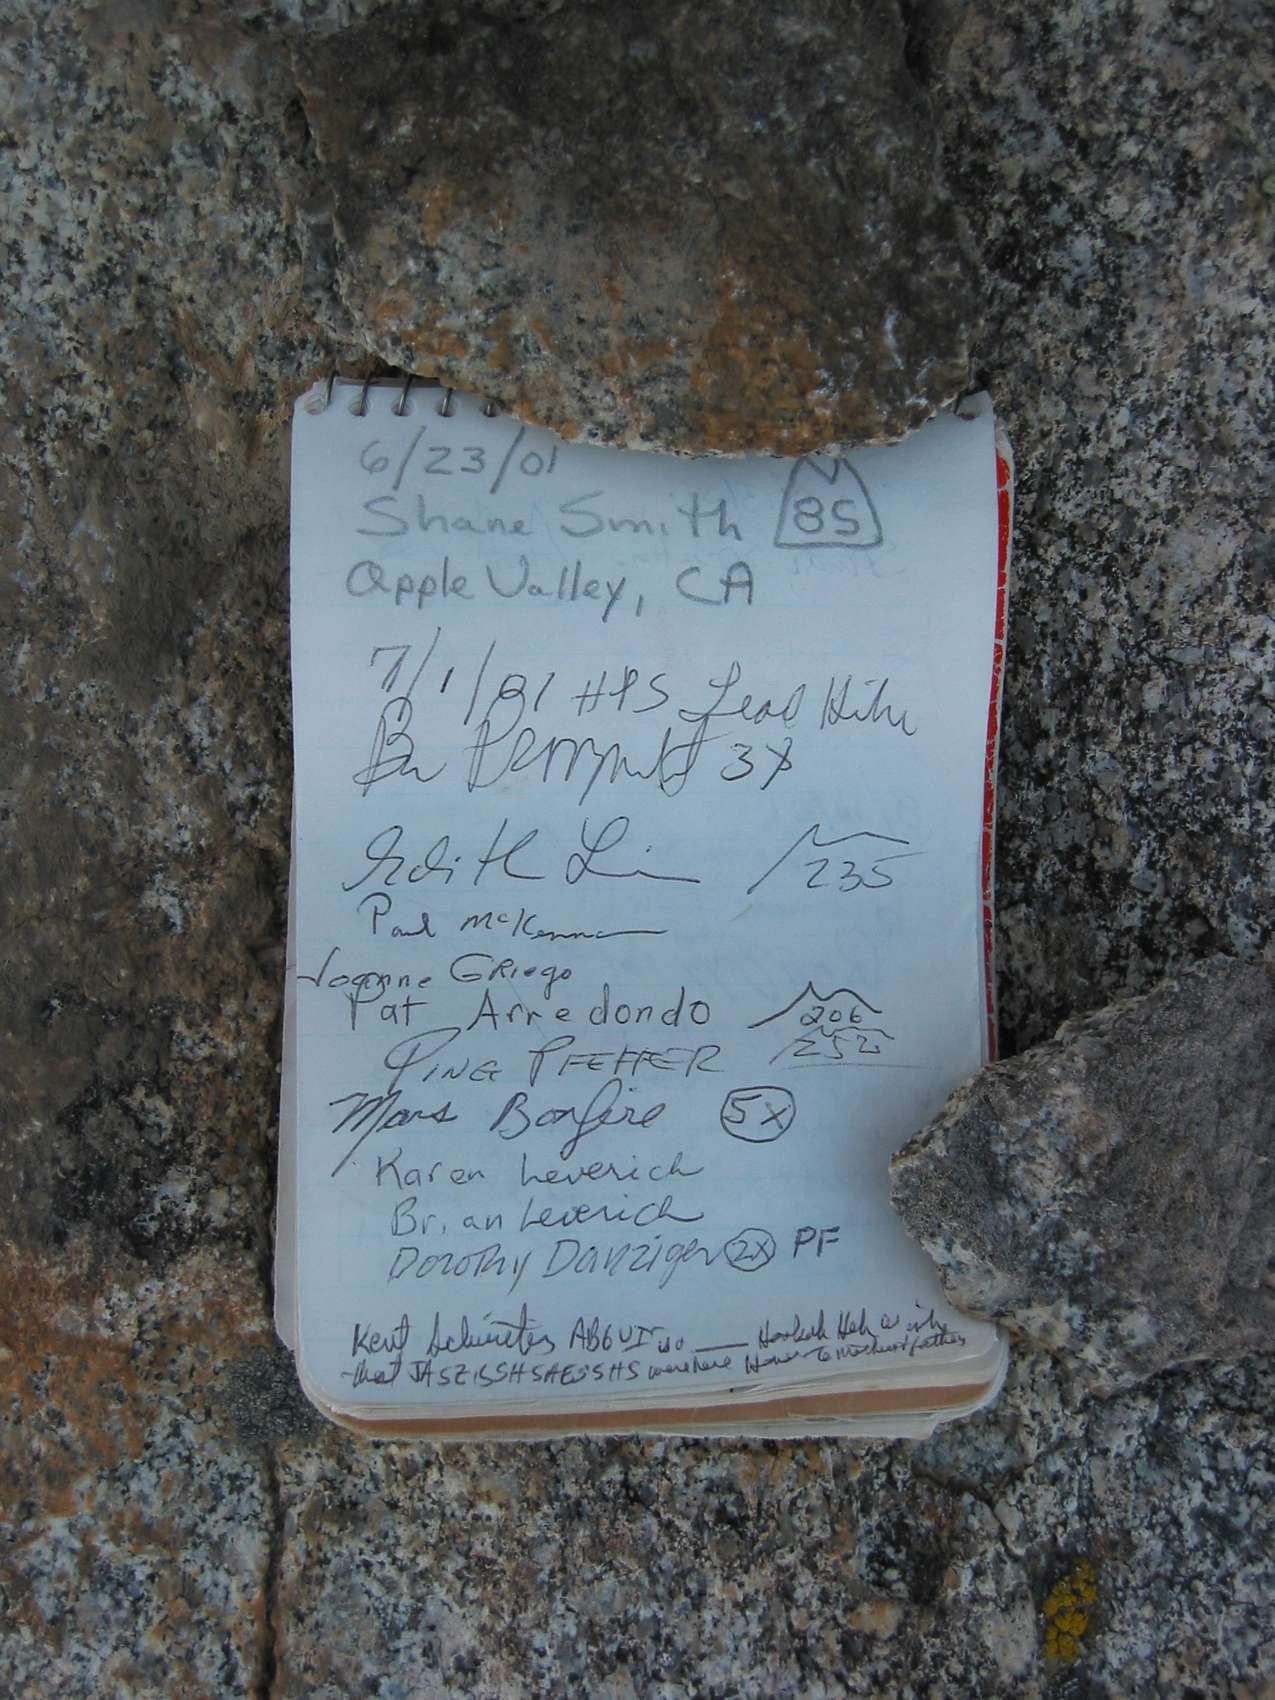 6/23/01
Shane Smith 85
Apple Valley, CA
7/1/01 HPS Lead Hike
3X
Edith Liu 235
Paul McKenna
Joanne Griego
Pat Arredondo 206
PING PFEFFER 252
Mars Bonfire 5X
Karen Leverich
Brian Leverich
Dorothy Danziger 2X PF
Kent Schwitkis
that were here